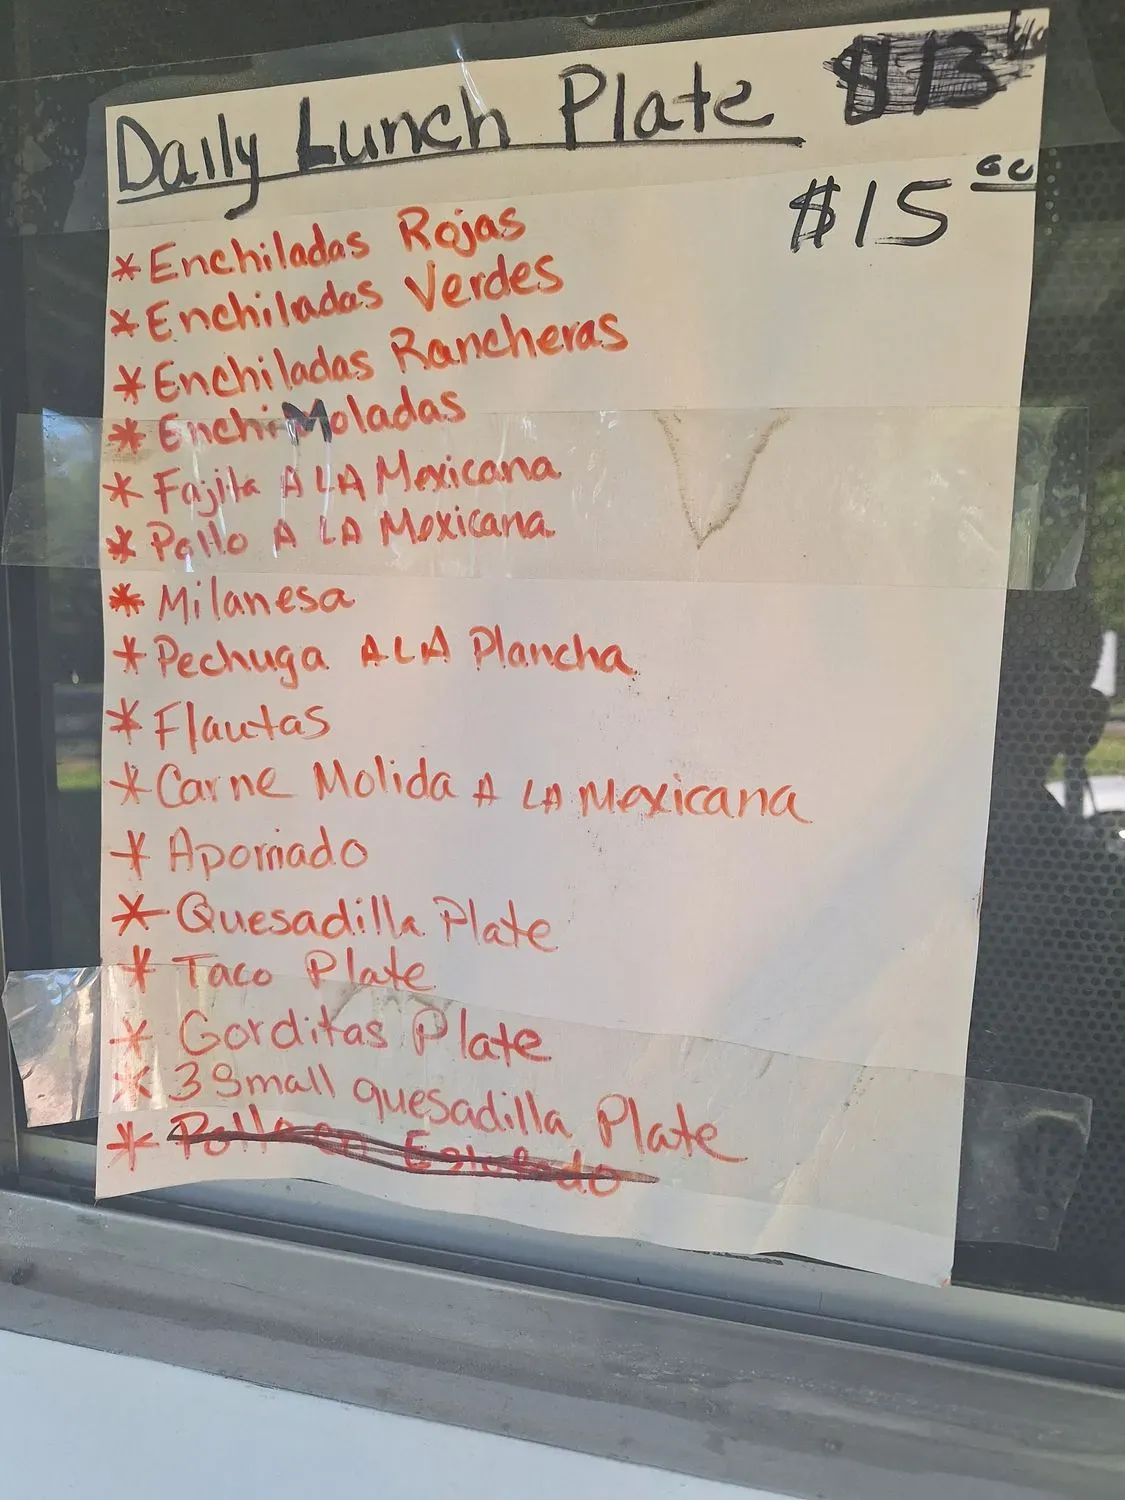 Daily Lunch Plate $13
$15.00
* Enchiladas Rojas
* Enchiladas Verdes
* Enchiladas Rancheras
* EnchiMoladas
* Fajita A LA Mexicana
* Pollo A LA Mexicana
* Milanesa
* Pechuga A LA Plancha
* Flautas
* Carne Molida A LA Mexicana
* Aporriado
* Quesadilla Plate
* Taco Plate
* Gorditas Plate
* 3 Small quesadilla Plate
* Pollo en Estofado